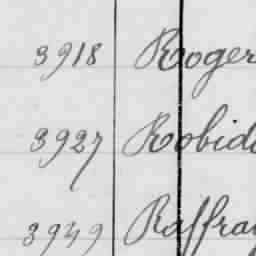 3918 Roger
3927 Robid
3949 Raffray